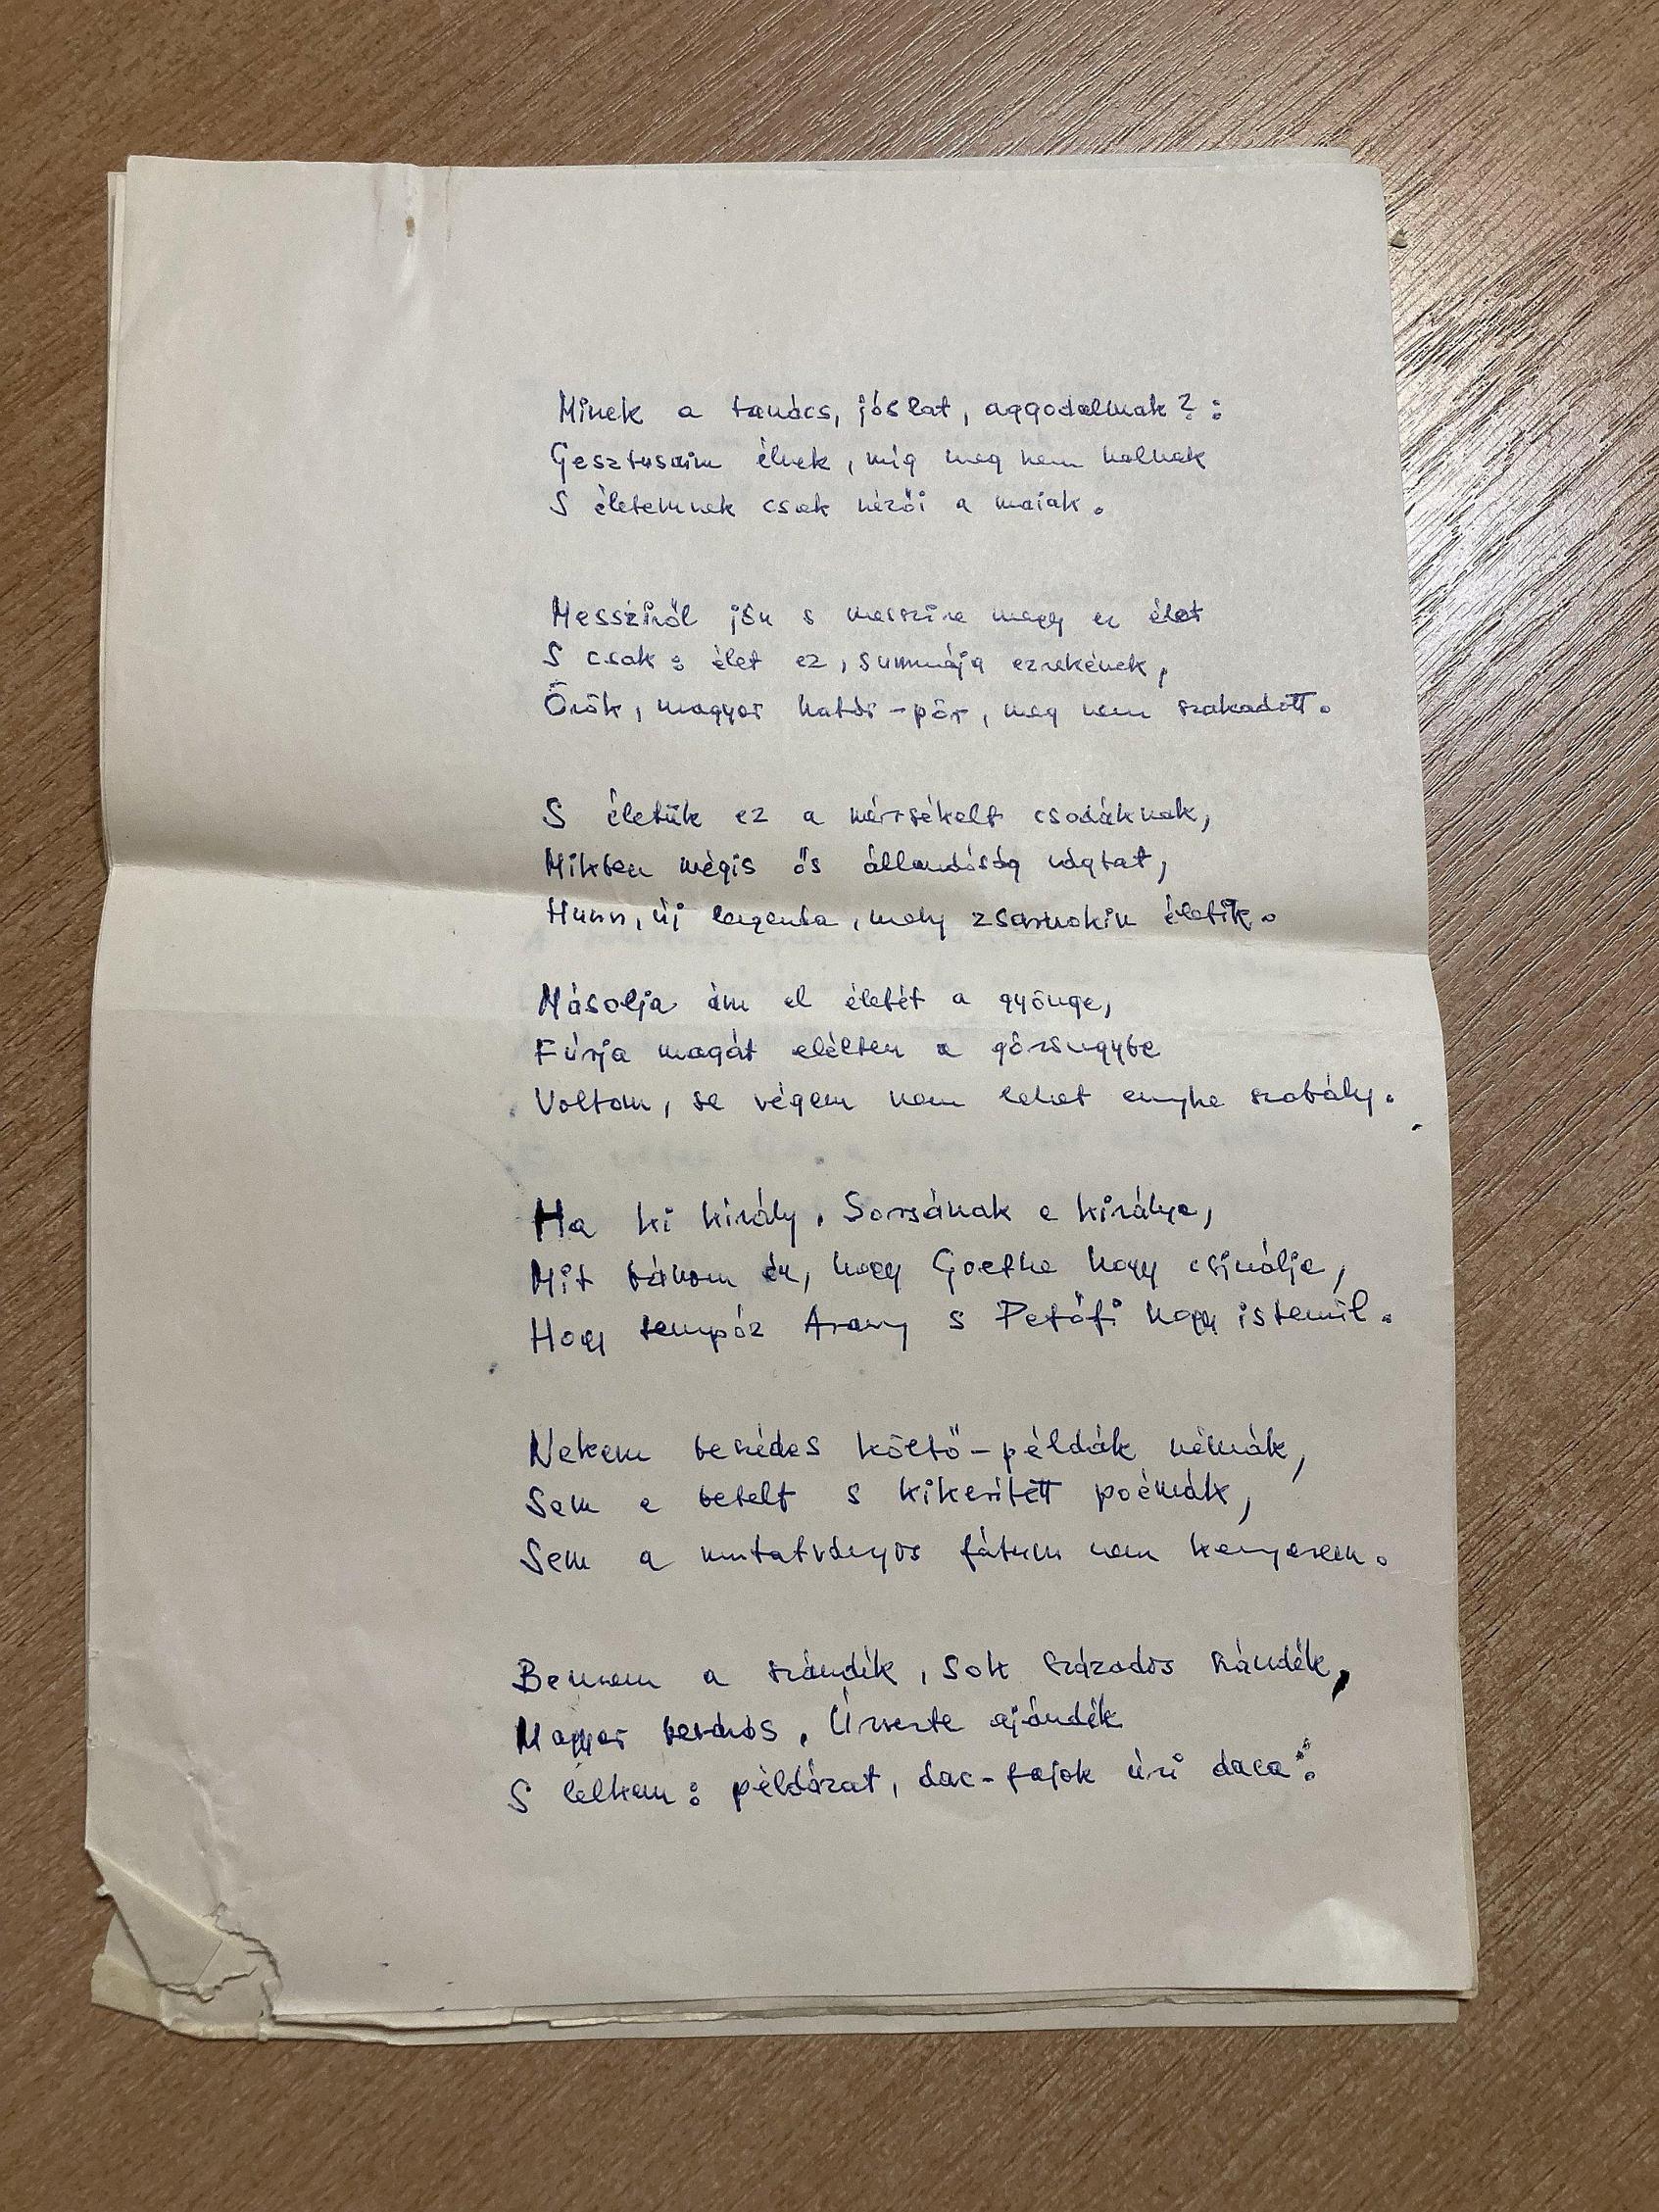 Minek a tanács, jóslat, aggodalmak?:
Gesztusaim élnek, míg meg nem halnak
S életemnek csak nézői a maiak.
Messziről jön s messzire megy ez élet
S csak: élet ez, summája ezrekének,
Örök, magyar határ-pör, meg nem szakadott.
S életük ez a mérsékelt csodáknak,
Mikben mégis ős állandóság vágtat,
Hunn, új legenda, mely zsarnokin életik.
Másolja ám el életét a gyönge,
Fúrja magát elélten a göröngybe
Voltom, se végem nem lehet enyhe szabály.
Ha ki király, Sorsának a királya,
Mit bánom én, hogy Goethe hogy csinálja,
Hogy tempóz Arany s Petőfi hogy istenül.
Nekem beszédes költő-példák némák,
Sem a betelt s kikerített poémák,
Sem a mutatványos fátum nem kenyerem.
Bennem a szándék, sok százados szándék,
Magyar bevárás, Úrverte ajándék
S lelkem: példázat, dac-fajok úri daca: